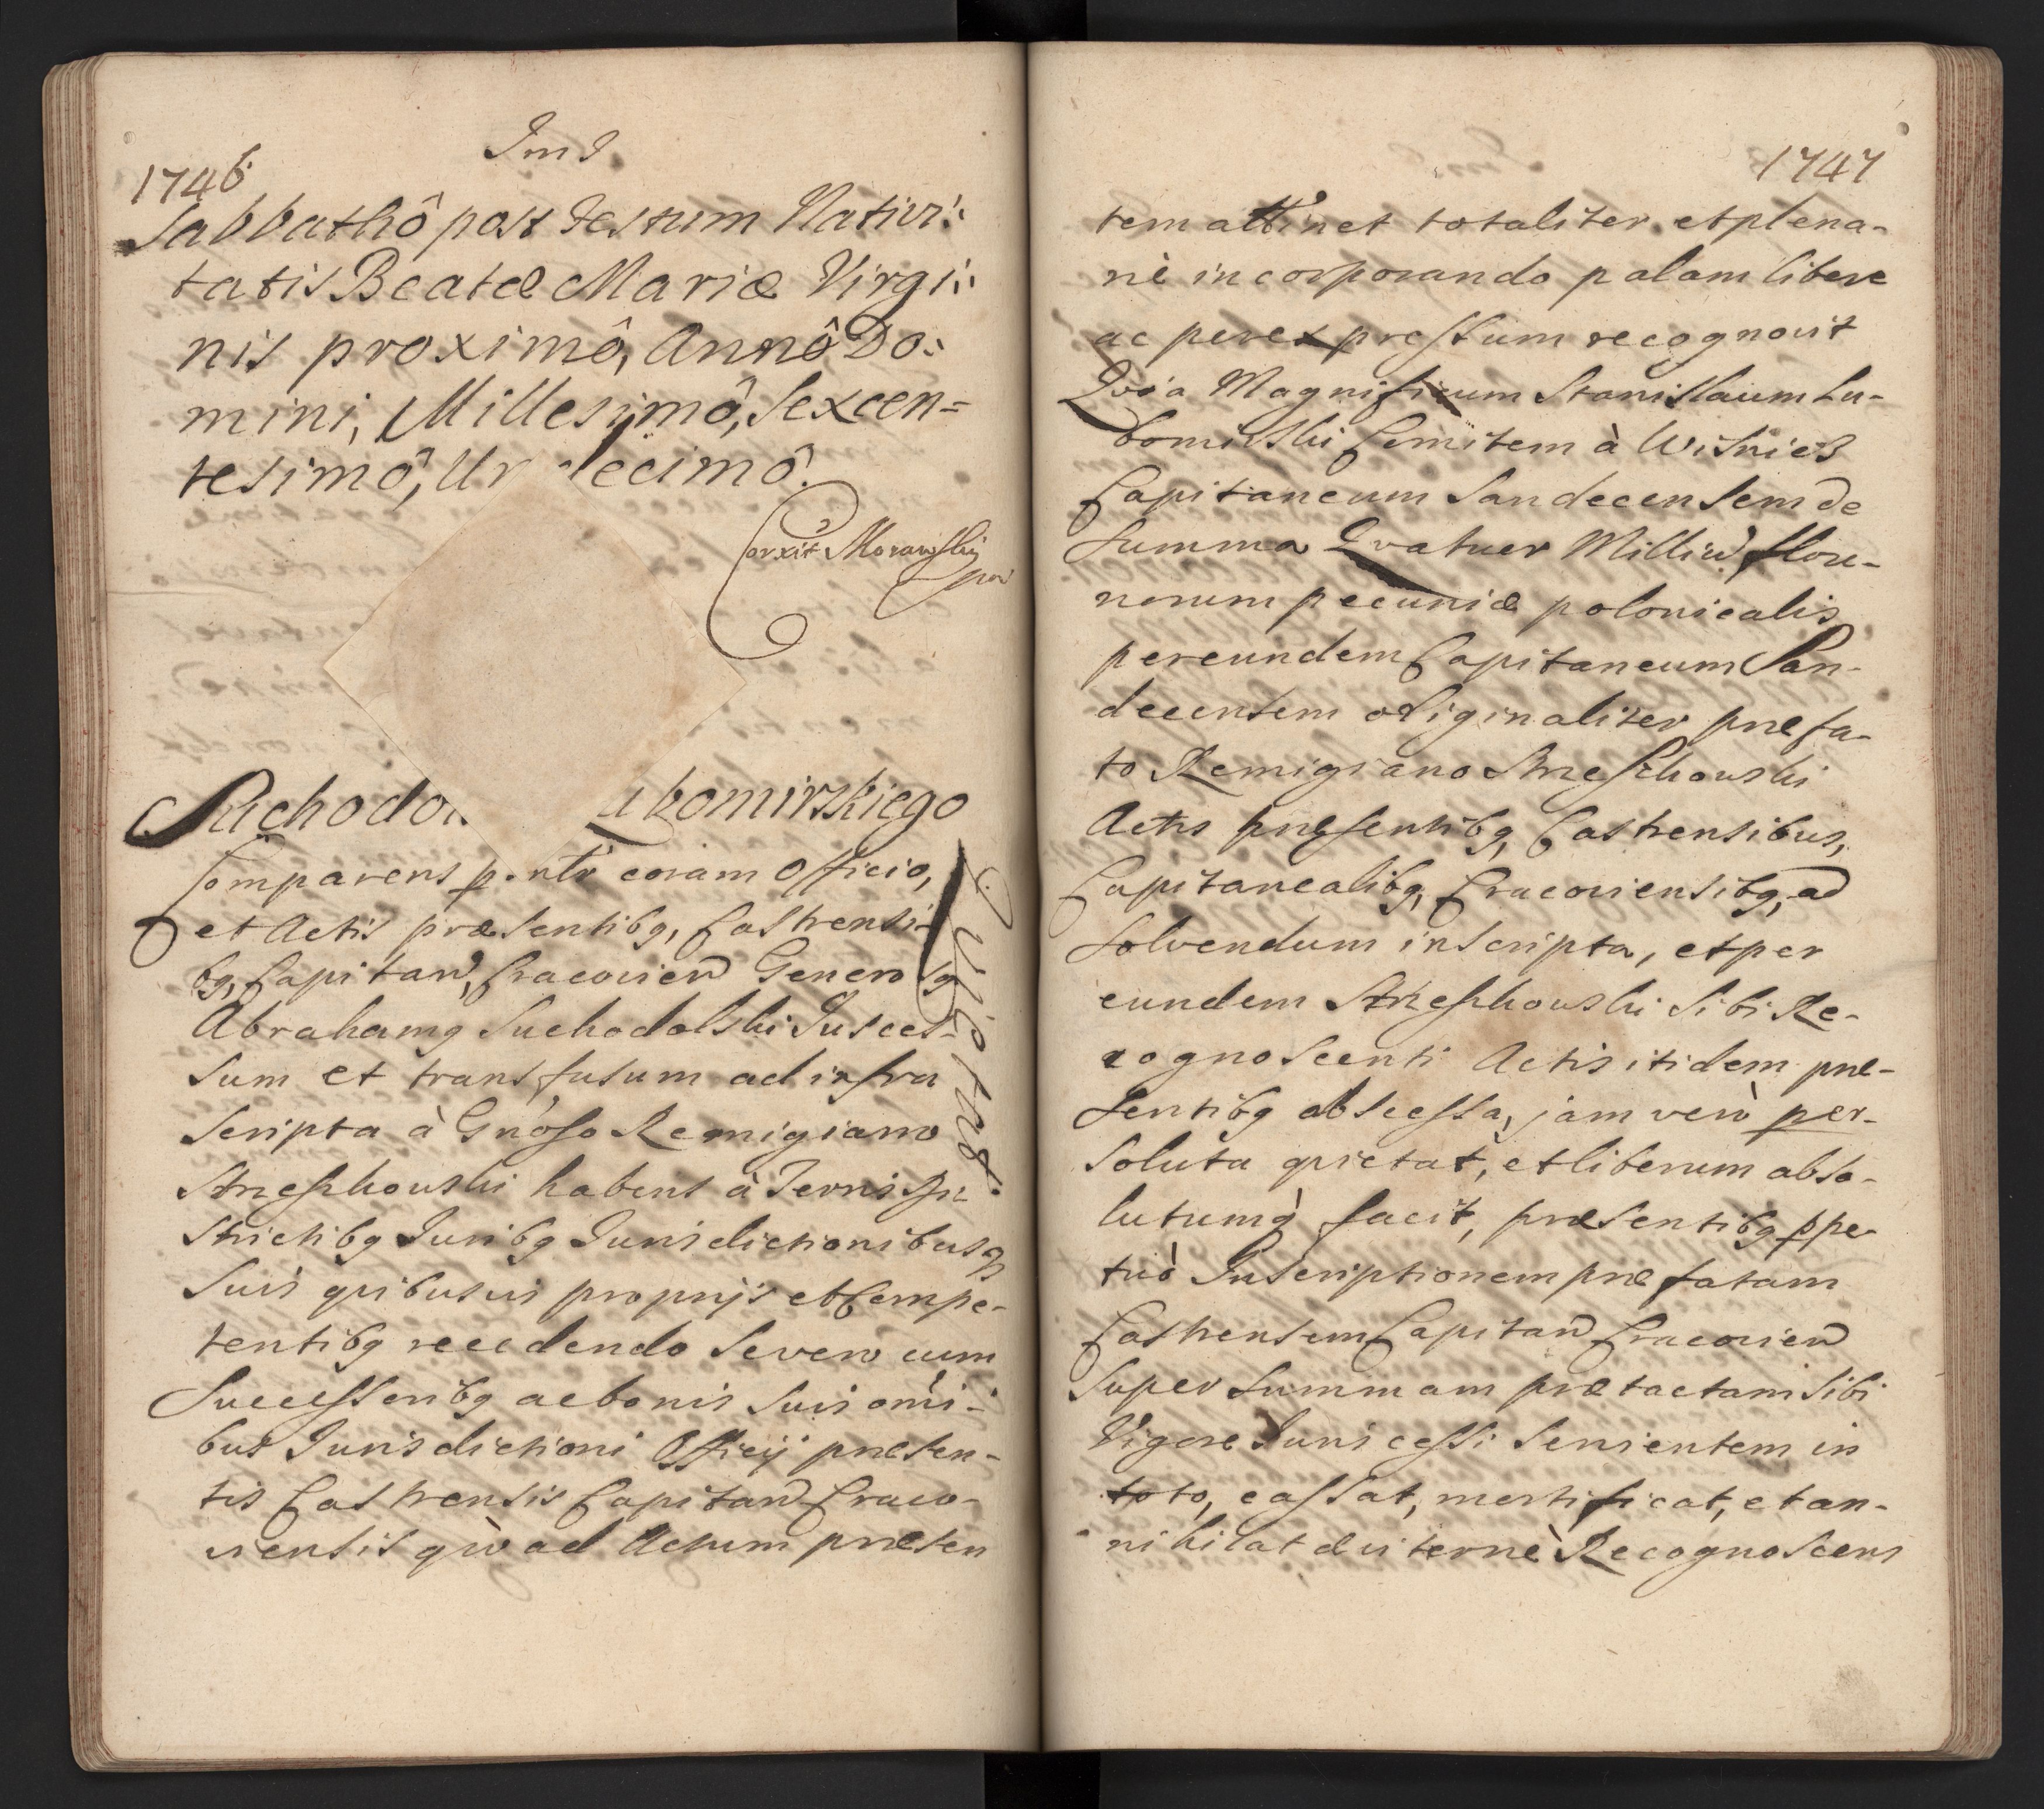 Im J
1746
Sabbathô post Festum Nativi:
tatis Beatæ Mariæ Virgi:
nis proximô, Annô Do:
mini, Millesimô, Sexcen=
tesimô, Un decimô.
Corxit Morawski
Suchodol ubomirskiego
Comparens p. ntr coram Officio,
et Actis præsentibq, Castrensi-
bq, Capitan, Cracovien Generosq
Abrahamq Suchodolski Jus ces-
sum et transfusum ad infra
scripta à Gnoso Remigiano
Strzeszkouski habens à Terris
strictibq Juribq Jurisdictionibusq
suis quibusvis proprijs et Compe-
tentibq recedendo se vero cum
Successoribq ac bonis suis omi-
bus Jurisdictioni Officij præsen-
tis Castrensis Capitan Craco-
viensis qvo ad Actum præsen
1747
tem attinet totaliter et plena-
riè incorporando palam libere
ac per expressum recognovit
Qvia Magnificum Stanislaum Lu-
bomirski Comitem à Wisnicz
Capitaneum Sandecensem de
summa Qvatuor Milliu flore-
norum pecuniæ polonicalis
per eundem Capitaneum San-
decensem originaliter præfa-
to Remigiano Strzeszkouski
Actis præsentibq, Castrensibus,
Capitanealibq, Cracoviensibq, ad
solvendum inscripta, et per
eundem Strzeszkouski sibi Re-
cognoscenti Actis itidem præ-
sentibq abscessa, jam verò per-
soluta qvietat, et liberum abso-
lutumq facit, præsentibq ppe-
tuò Inscriptionem præfatam
Castrensem Capitan Cracovien
super summam prætactam sibi
Vigore Juris cessi servientem in
toto, cassat, mortificat, et an-
nihilat æviternè Recognoscens